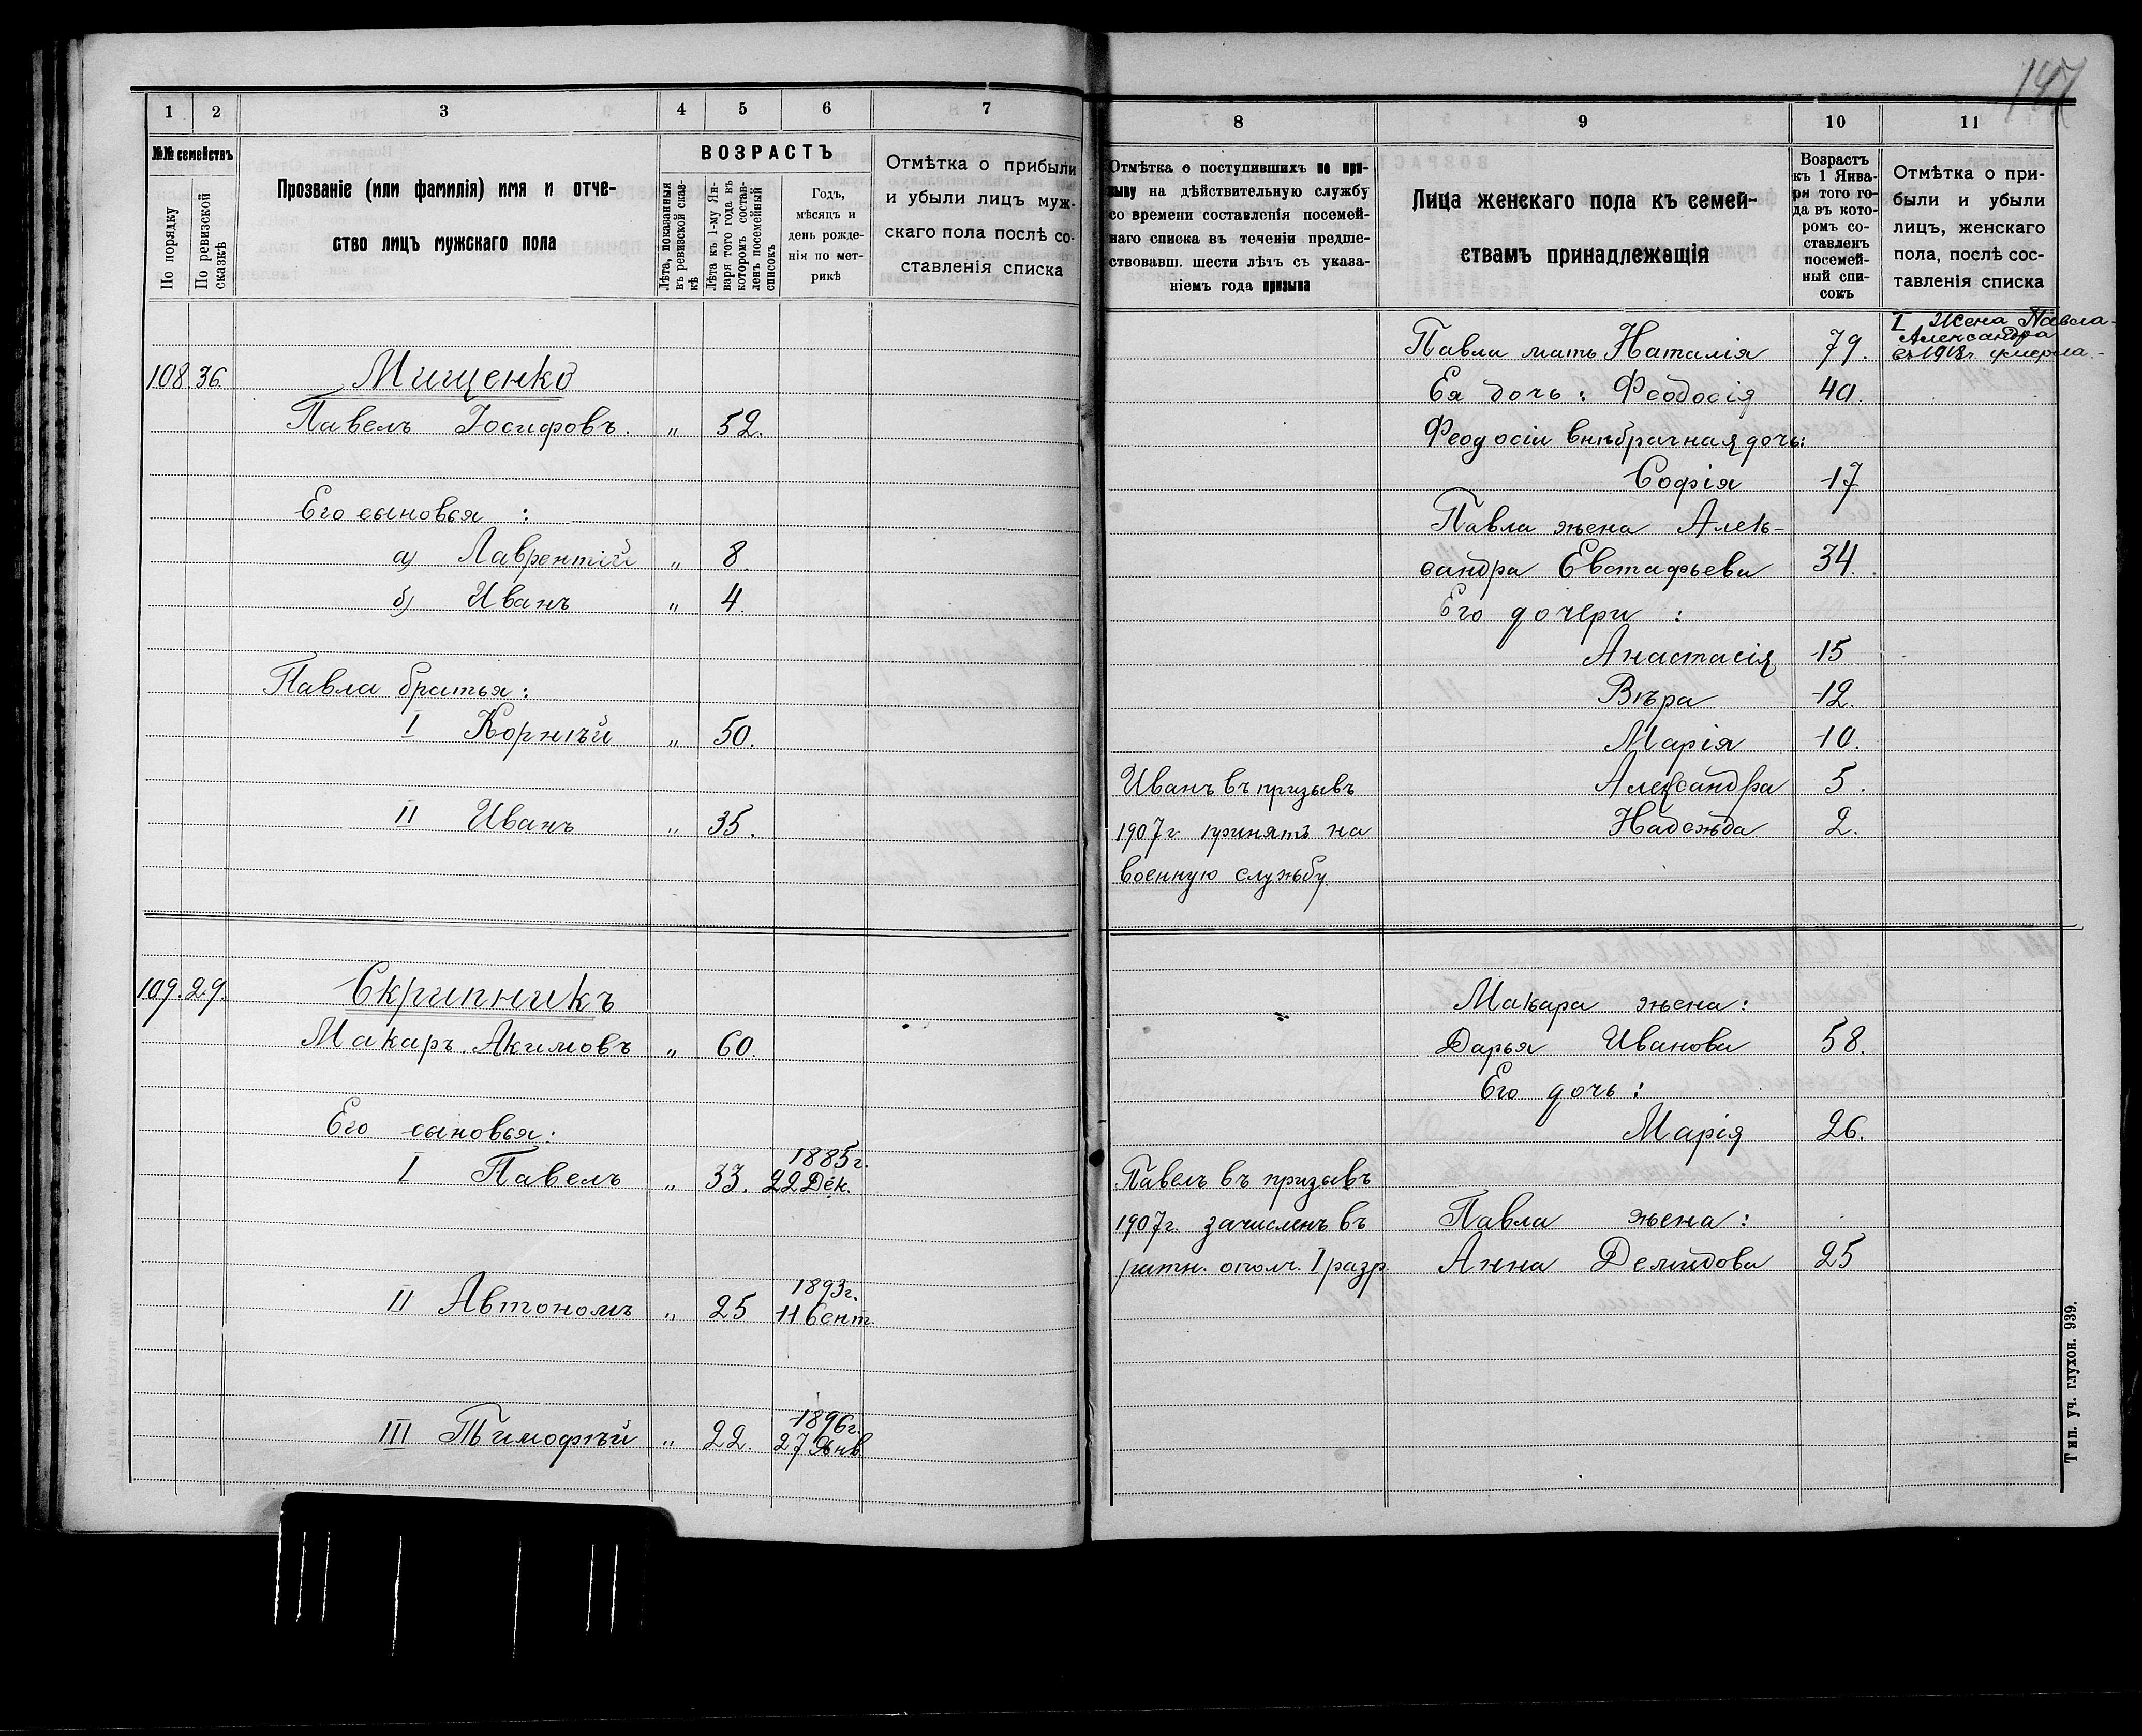 147
1 2 3 4 5 6 7
№№ семействъ
По порядку
По ревизской сказкѣ
Прозваніе (или фамилія) имя и отче-
ство лицъ мужскаго пола
ВОЗРАСТЪ
Лѣта, показанныя въ ревизской сказ-
кѣ
Лѣта къ 1-му Ян-
варя того года въ
которомъ состав-
ленъ посемейный
списокъ
Годъ,
мѣсяцъ и
день рожде-
нія по мет-
рикѣ
Отмѣтка о прибыли
и убыли лицъ муж-
скаго пола послѣ со-
ставленія списка
108 36. Мищенко
Павелъ Іосифовъ. „ 52.
Его сыновья :
а) Лаврентій „ 8
б) Иванъ „ 4.
Павла братья:
I Корнѣй „ 50.
II Иванъ „ 35.
109. 29. Скрипникъ
Макаръ Акимовъ „ 60.
Его сыновья:
I Павелъ „ 33. 1885г.
22 Дек.
II Автономъ „ 25 1893г.
11 Сент.
III Тимофѣй „ 22. 1896г.
27 Янв
8 9 10 11
Отмѣтка о поступившихъ по при-
зыву на дѣйствительную службу
со времени составленія посемей-
наго списка въ теченіи предше-
ствовавш. шести лѣтъ съ указа-
ніемъ года призыва
Лица женскаго пола къ семей-
ствамъ принадлежащія
Возрастъ
къ 1 Янва-
ря того го-
да въ кото-
ромъ со-
ставленъ
посемей-
ный спи-
сокъ
Отмѣтка о при-
были и убыли
лицъ, женскаго
пола, послѣ сос-
тавленія списка
I Жена Павла-
Александра
въ 1918г. умерла.-
Павла мать Наталія 79.
Ея дочь : Феодосія 40.
Феодосіи внѣбрачная дочь:
Софія 17
Павла жена Алек-
сандра Евстафьева 34.
Его дочери :
Анастасія 15
Вѣра 12.
Марія 10.
Иванъ въ призывъ Александра 5.
1907г принятъ на Надежда 2.
военную службу.
Макара жена:
Дарья Иванова 58.
Его дочь :
Марія 26.
Павелъ въ призывъ
1907г. зачисленъ въ Павла жена :
ратн. ополч. I разр. Анна Демидова 25
Тип. уч. глухон. 939.